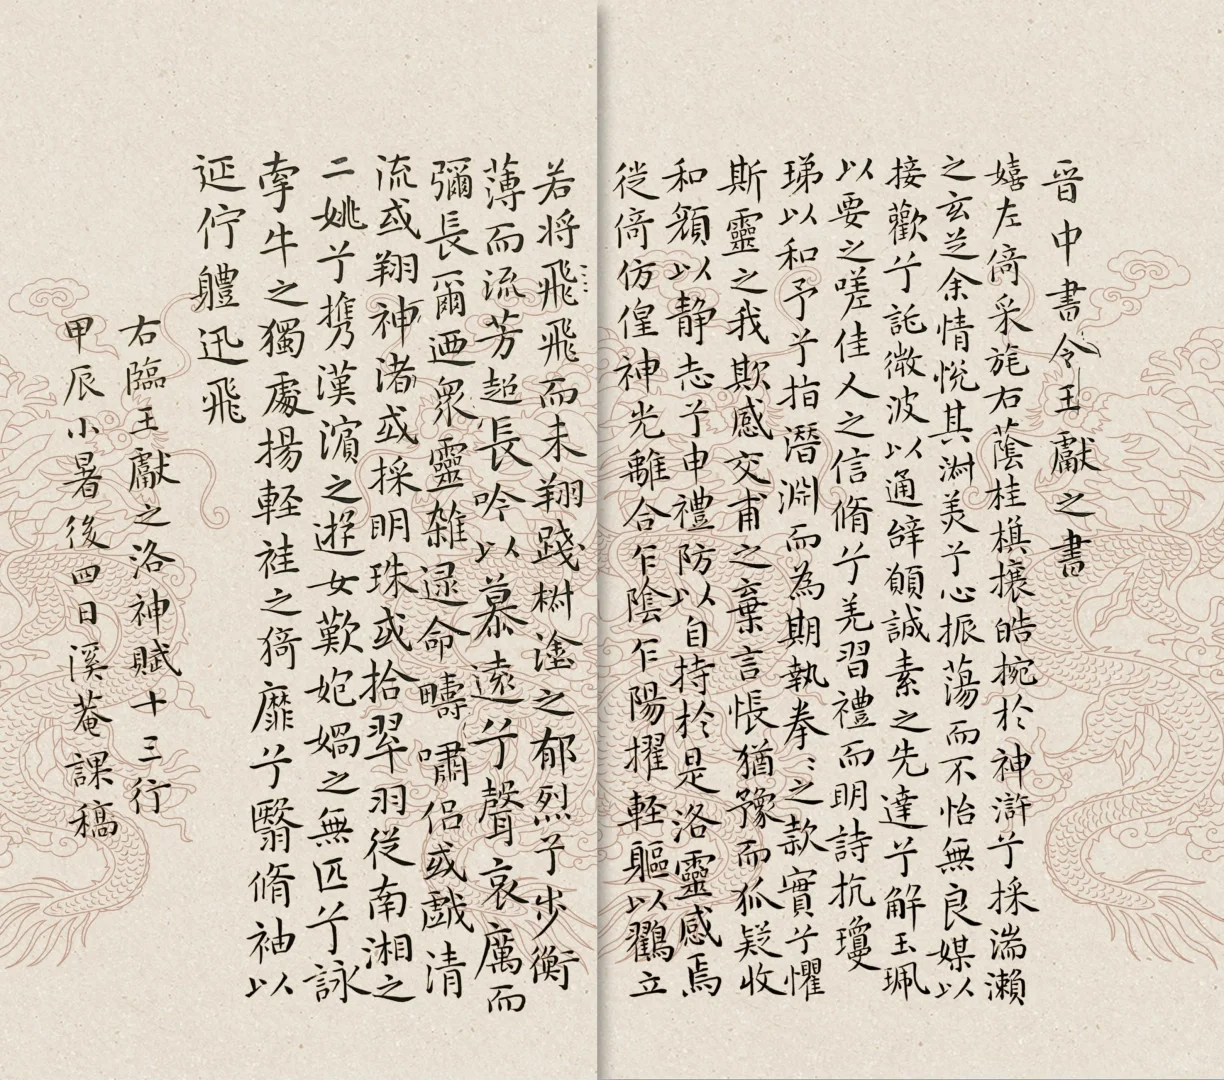 晉中書令王獻之書
嬉左倚采旄右蔭桂旗攘皓捥於神滸兮採湍瀬
之玄芝余情悅其淑美兮心振蕩而不怡無良媒以
接歡兮託微波以通辭願誠素之先達兮解玉珮
以要之嗟佳人之信脩兮羌習禮而明詩抗瓊
珶以和予兮指潛淵而為期執拳〻之款實兮懼
斯靈之我欺感交甫之棄言悵猶豫而狐疑收
和顏以静志兮申禮防以自持於是洛靈感焉
徙倚仿偟神光離合乍陰乍陽擢軽軀以鸖立
若將飛飛而未翔踐椒塗之郁烈兮步衡
薄而流芳超長吟以慕遠兮聲哀厲而
彌長爾迺衆靈雜遝命疇嘯侣或戲清
流或翔神渚或採明珠或拾翠羽従南湘之
二姚兮携漢濱之遊女歎妑媧之無匹兮詠
牽牛之獨處揚軽袿之猗靡兮翳脩袖以
延佇軆迅飛
右臨王獻之洛神賦十三行
甲辰小暑後四日溪菴課稿